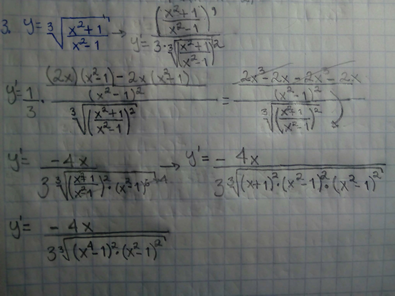 3. y = ∛((x²+1)/(x²-1)) → y' = ((x²+1)/(x²-1))' / (3·∛((x²+1)/(x²-1))²)
y' = 1/3 · (((2x)(x²-1) - 2x(x²-1))/(x²-1)²) / ∛((x²+1)/(x²-1))² = ((2x³-2x-2x³-2x)/(x²-1)²) / ∛((x²+1)/(x²-1))²
y' = -4x / (3∛(((x²+1)/(x²-1))²·(x²-1)⁶)) → y' = - 4x / (3∛((x+1)²·(x²-1)²·(x²-1)²))
y' = -4x / (3∛((x⁴-1)²·(x²-1)²))